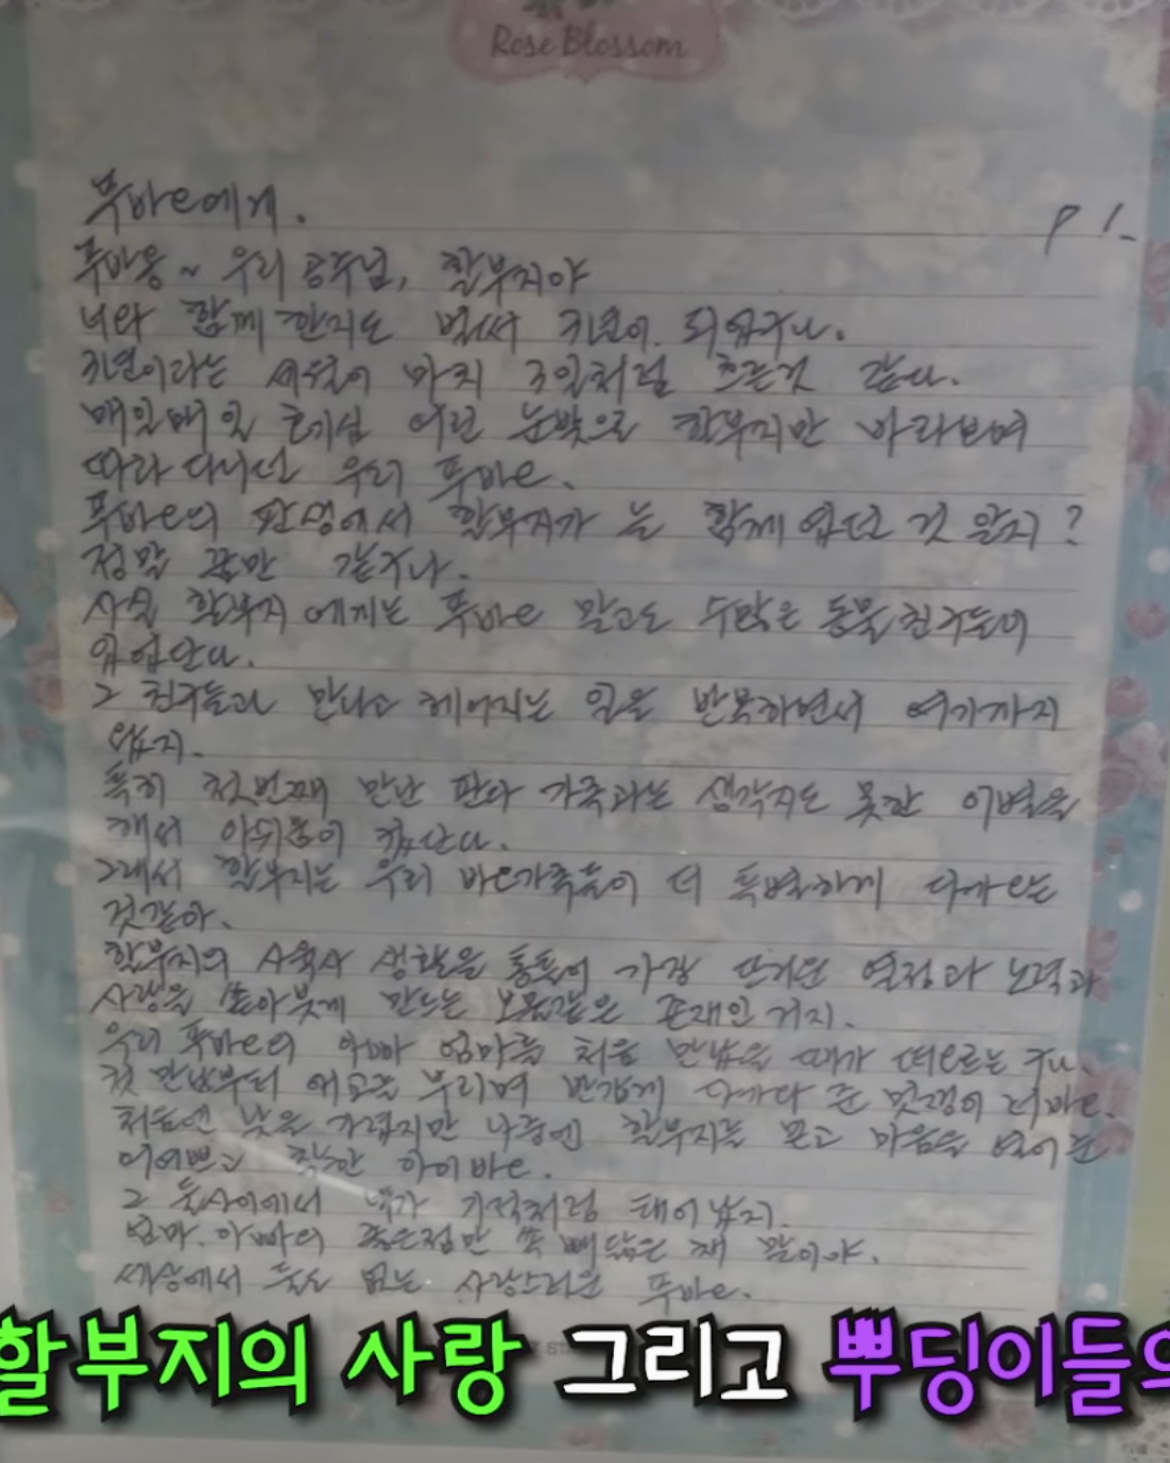 Rose Blossom
푸바오에게.
P 1.
푸바옹~ 우리 공주님, 할부지야
너와 함께 한지도 벌써 3년이 되었구나.
3년이라는 세월이 마치 3일처럼 흐른것 같다.
매일매일 호기심 어린 눈빛으로 할부지만 바라보며
따라 다니던 우리 푸바오.
푸바오의 판생에서 할부지가 늘 함께 있던 것 알지?
정말 꿈만 같구나.
사실 할부지에게는 푸바오 말고도 수많은 동물친구들이
있었단다.
그 친구들과 만나고 헤어지는 일을 반복하면서 여기까지
왔지.
특히 첫번째 만난 판다 가족과는 생각지도 못한 이별을
해서 아쉬움이 컸단다.
그래서 할부지는 우리 바오가족들이 더 특별하게 다가오는
것같아.
할부지의 사육사 생활을 통틀어 가장 뜨거운 열정과 노력과
사랑을 쏟아붓게 만드는 보물같은 존재인 거지.
우리 푸바오의 아빠 엄마를 처음 만났을 때가 떠오르는 구나.
첫 만남부터 애교를 부리며 반갑게 다가와 준 멋쟁이 러바오.
처음엔 낯을 가렸지만 나중엔 할부지를 믿고 마음을 열어준
어여쁘고 착한 아이바오.
그 둘사이에서 네가 기적처럼 태어났지.
엄마. 아빠의 좋은점만 쏙 빼닮은 채 말이야.
세상에서 둘도 없는 사랑스러운 푸바오.
할부지의 사랑 그리고 뿌딩이들의